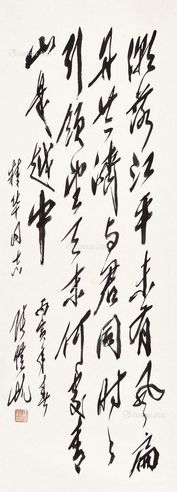 潮落江平未有风扁
舟共济与君同时々
引领望天末何处青
山是越中
同志
丙寅年春
张恺帆